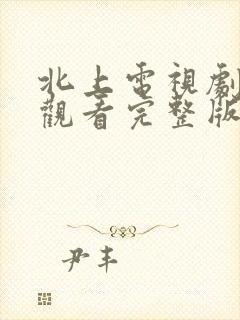 北上電視劇
觀看完整版
尹丰